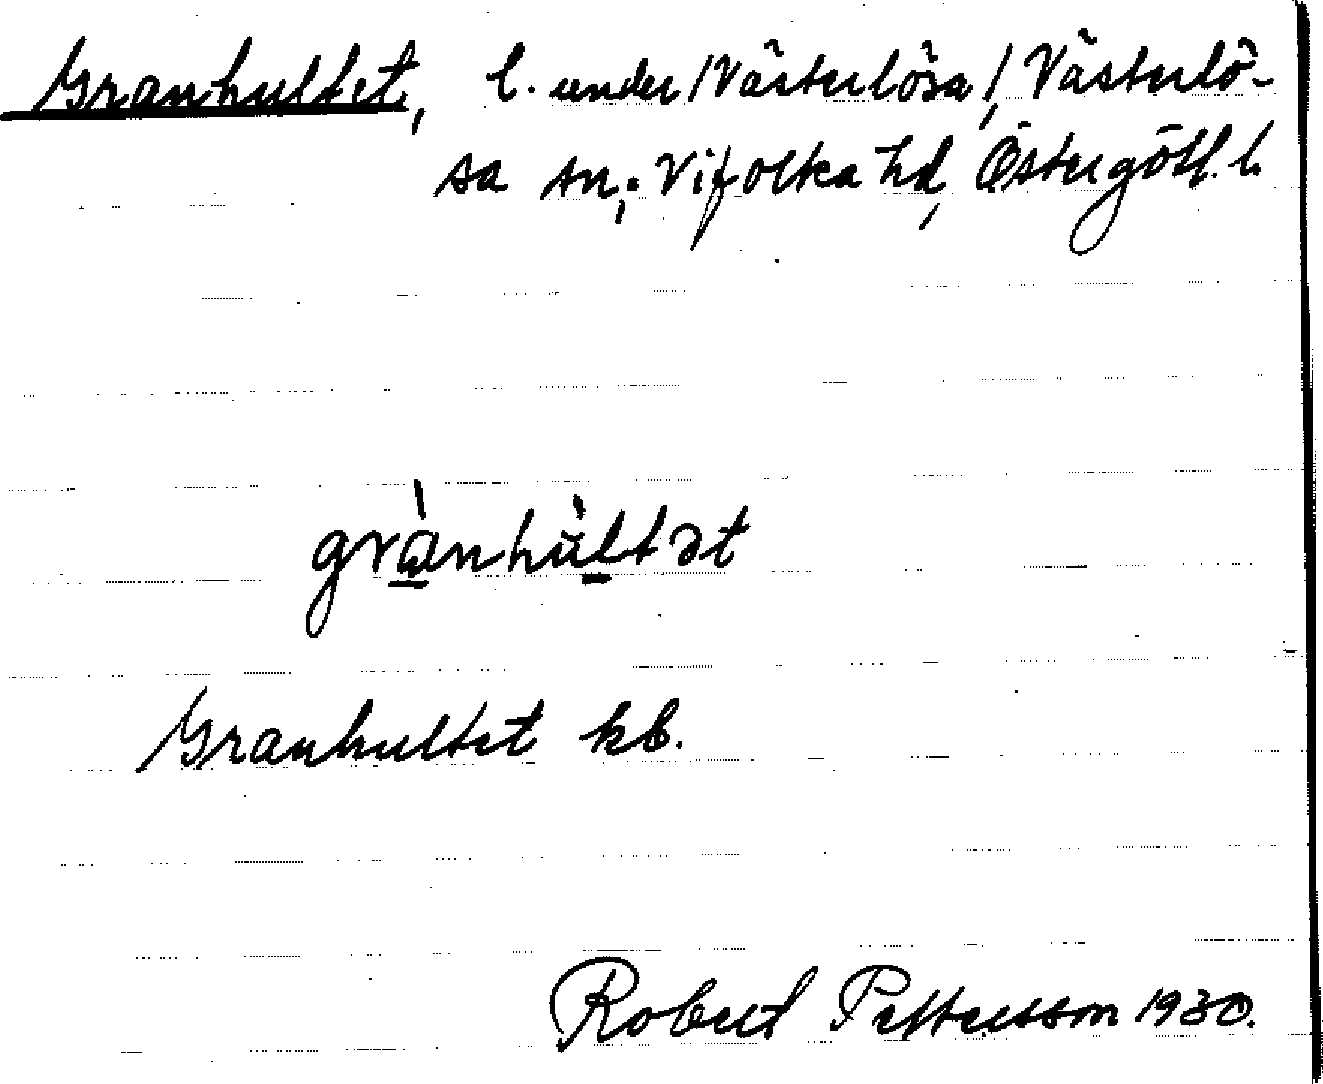 Granhultet, l. under /Västerlösa/, Västerlö-
sa sn; Vifolka hd, Östergötl. l.
grànhùltət
Granhultet kb.
Robert Pettersson 1930.